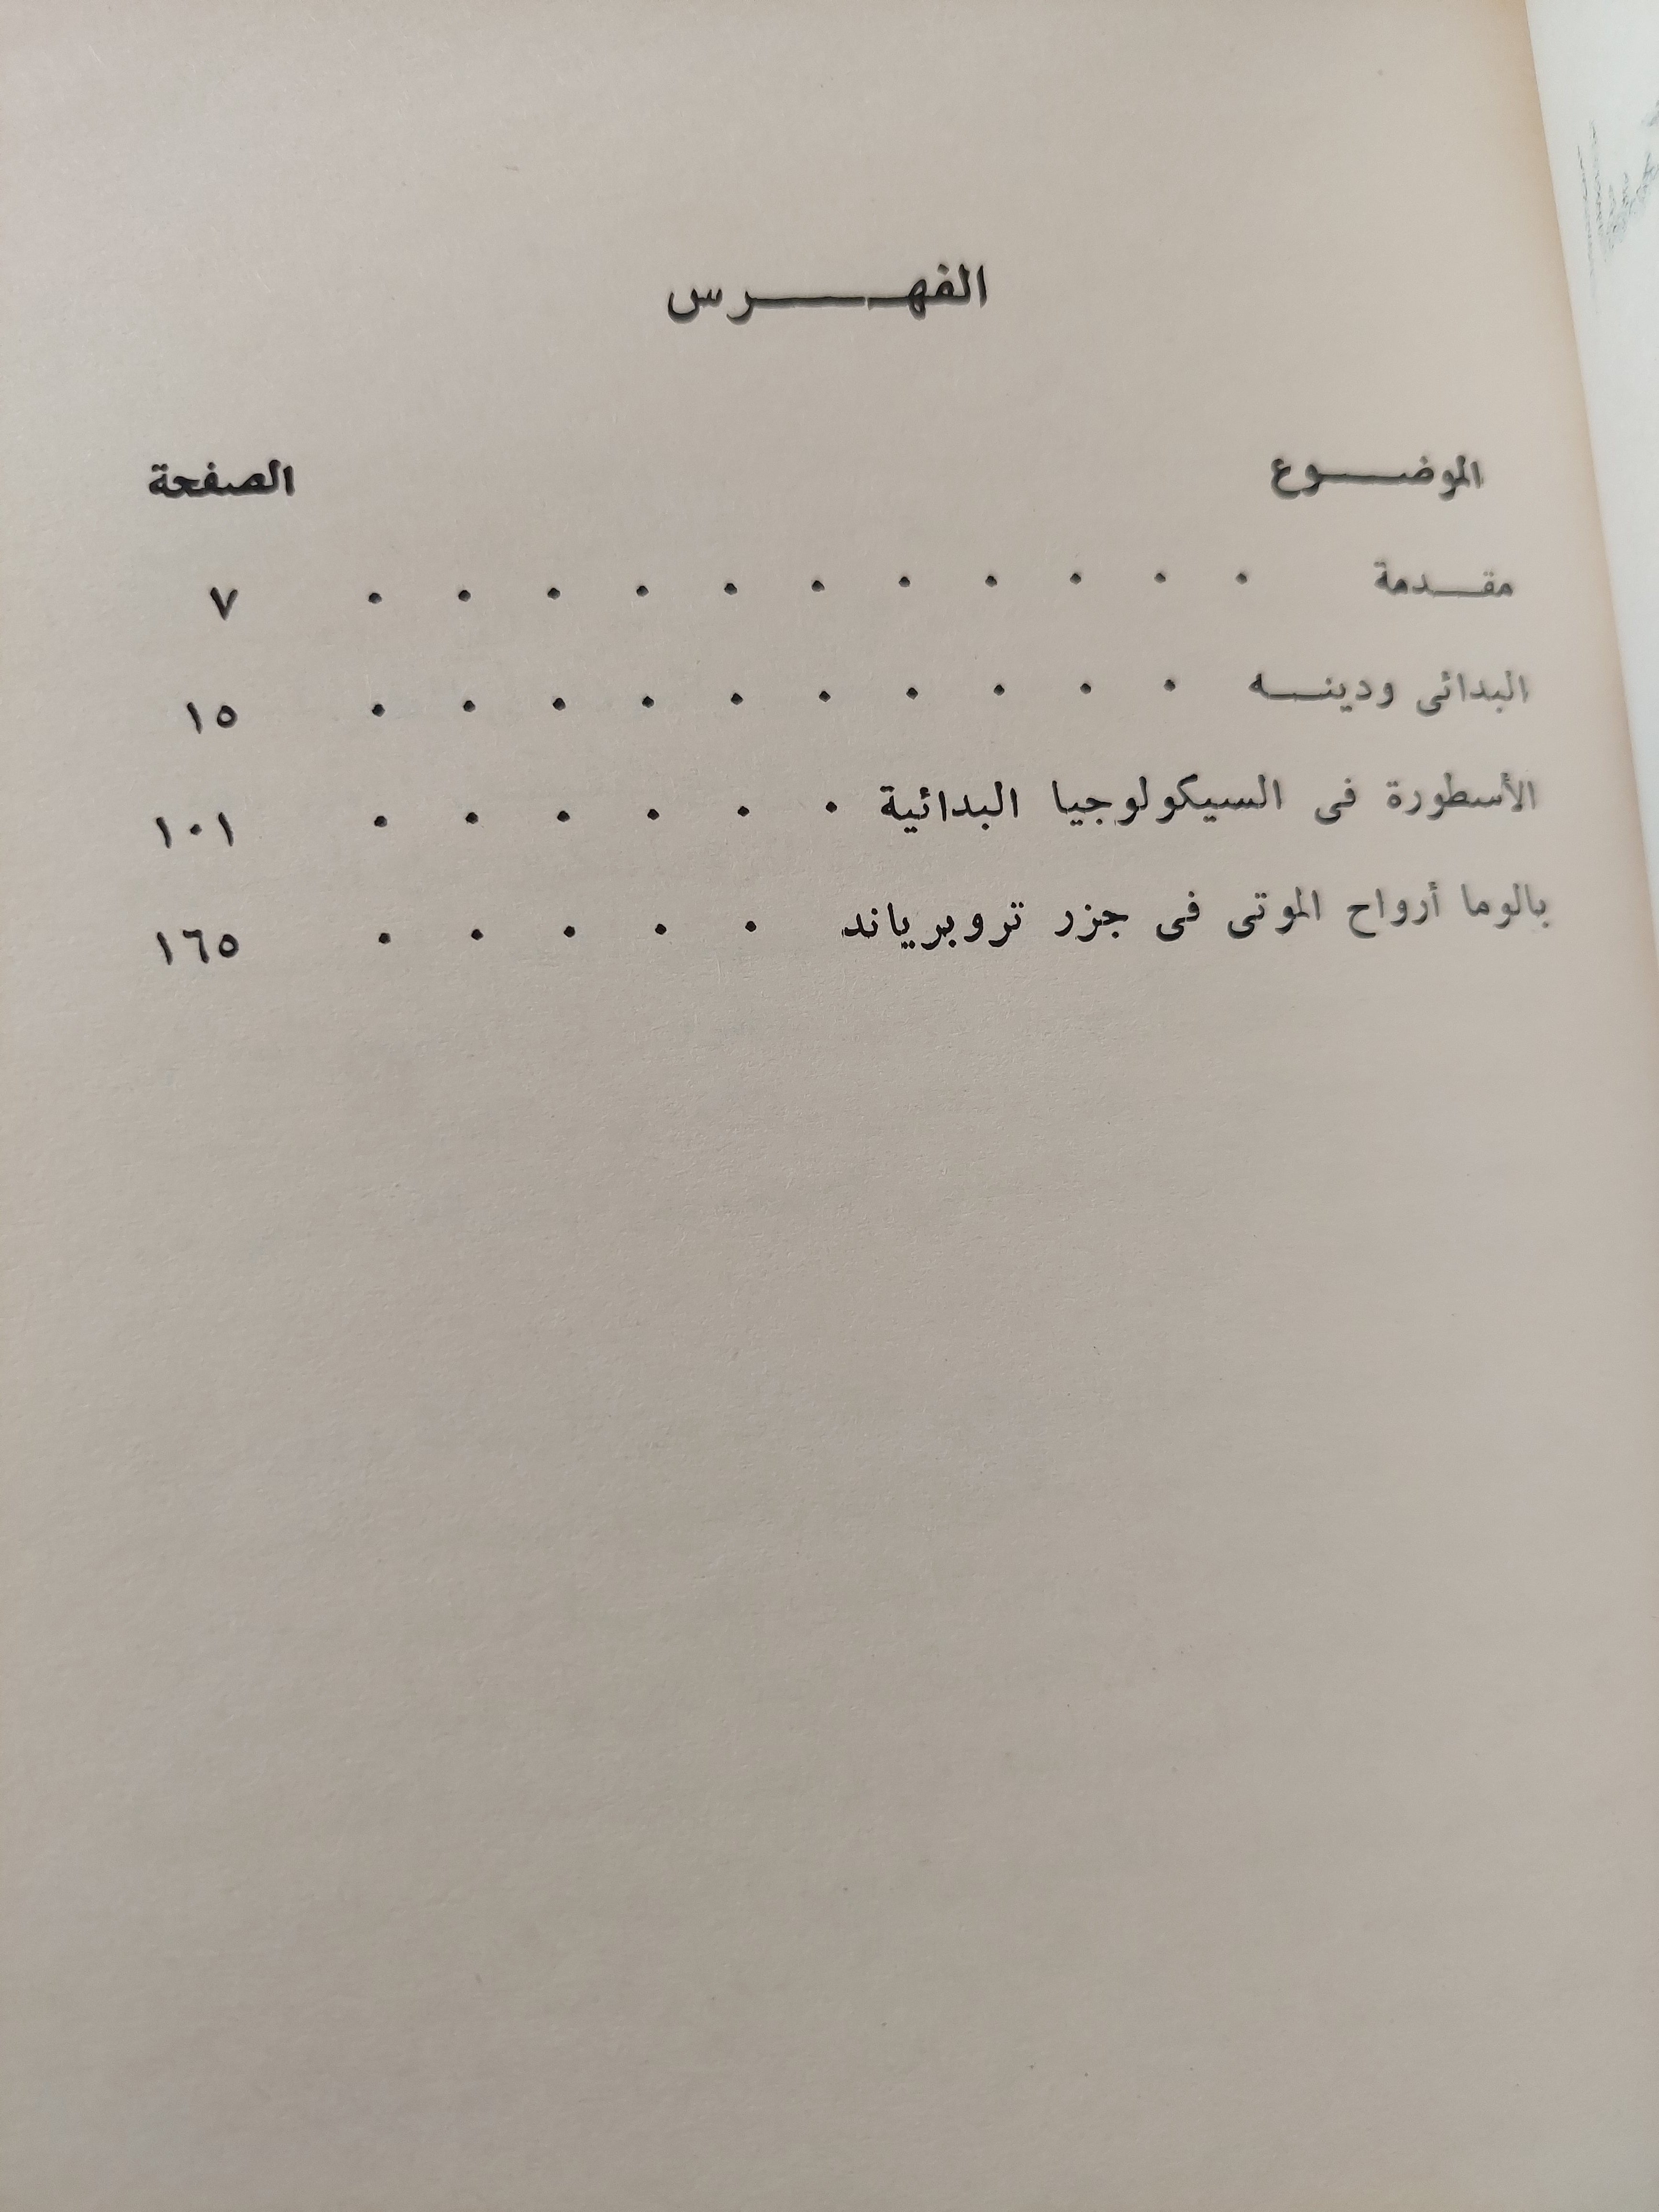 الفهرس
الموضوع الصفحة
مقدمة . . . . . . . . . . . ٧
البدائى ودينه . . . . . . . . . . ١٥
الأسطورة فى السيكولوجيا البدائية . . . . . . ١٠١
بالوما أرواح الموتى فى جزر تروبرياند . . . . . ١٦٥